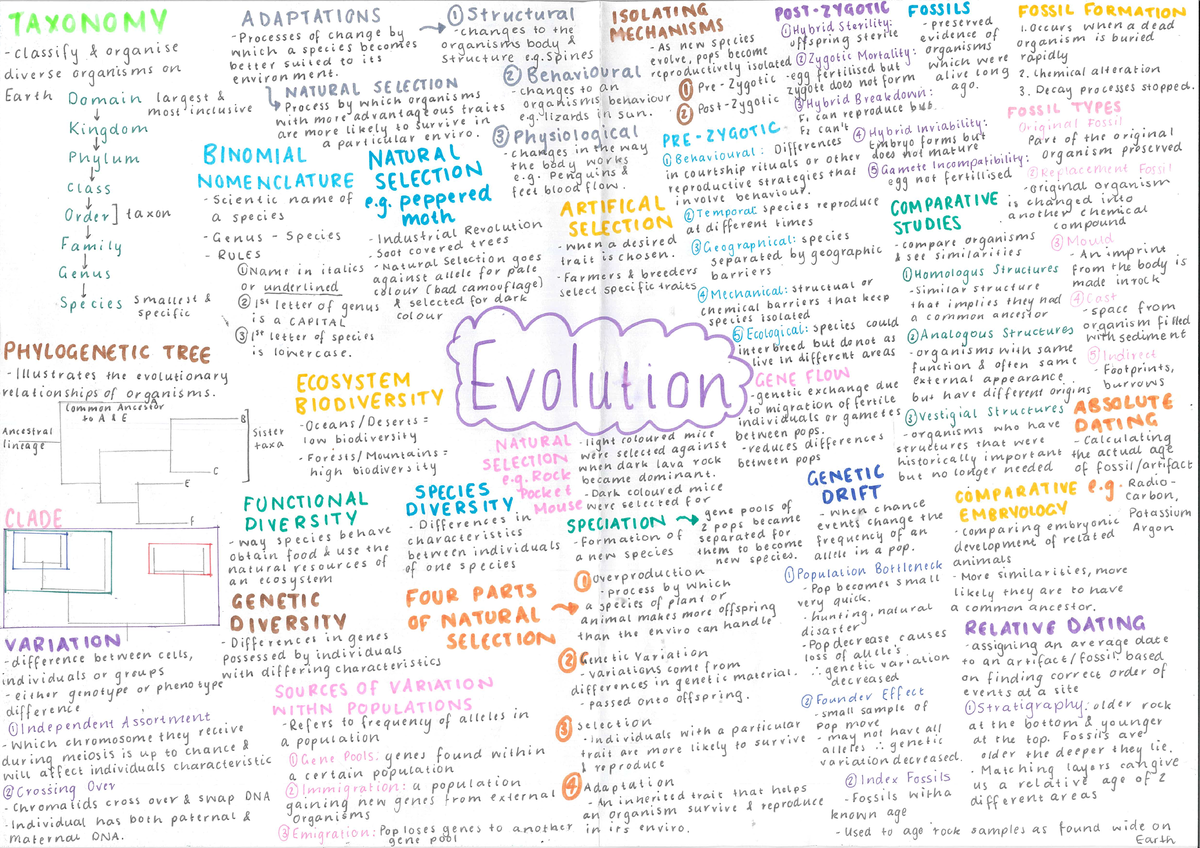 TAXONOMY
-classify & organise
diverse organisms on
Earth
Domain largest &
most inclusive
Kingdom
Phylum
Class
Order ] taxon
Family
Genus
Species smallest &
specific
PHYLOGENETIC TREE
- Illustrates the evolutionary
relationships of organisms.
Common Ancestor
to A & E
Ancestral
lineage
B
Sister
taxa
C
E
F
CLADE
VARIATION
-difference between cells,
individuals or groups
-either genotype or phenotype
difference
①Independent Assortment
-Which chromosome they receive
during meiosis is up to chance &
will affect individuals characteristic
②Crossing Over
-Chromatids cross over & swap DNA
-Individual has both paternal &
maternal DNA.
ADAPTATIONS
-Processes of change by
which a species becomes
better suited to its
environment.
NATURAL SELECTION
Process by which organisms
with more advantageous traits
are more likely to survive in
a particular enviro.
①Structural
-changes to the
organisms body &
structure e.g. Spines
②Behavioural
-changes to an
organisms behaviour
e.g. lizards in sun.
③Physiological
-changes in the way
the body works
e.g. Penguins &
feet blood flow.
BINOMIAL
NOMENCLATURE
-Scientic name of
a species
-Genus - Species
-RULES
①Name in italics
or underlined
②1st letter of genus
is a CAPITAL
③1st letter of species
is lowercase.
NATURAL
SELECTION
e.g. peppered
moth
-Industrial Revolution
-Soot covered trees
-Natural Selection goes
against allele for pale
colour (bad camouflage)
& selected for dark
colour
Evolution
ECOSYSTEM
BIODIVERSITY
-Oceans/Deserts =
low biodiversity
-Forests/Mountains =
high biodiversity
FUNCTIONAL
DIVERSITY
-way species behave
obtain food & use the
natural resources of
an ecosystem
SPECIES
DIVERSITY
-Differences in
characteristics
between individuals
of one species
GENETIC
DIVERSITY
-Differences in genes
possessed by individuals
with differing characteristics
SOURCES OF VARIATION
WITHN POPULATIONS
-Refers to frequency of alleles in
a population
①Gene Pools: genes found within
a certain population
②Immigration: a population
gaining new genes from external
organisms
③Emigration: Pop loses genes to another
gene pool
NATURAL
SELECTION
e.g. Rock
Pocket
Mouse
-light coloured mice
were selected against
when dark lava rock
became dominant.
-Dark coloured mice
were selected for
SPECIATION
-Formation of
a new species
gene pools of
2 pops became
separated for
them to become
new species.
FOUR PARTS
OF NATURAL
SELECTION
①Overproduction
-process by which
a species of plant or
animal makes more offspring
than the enviro can handle
②Genetic Variation
-Variations come from
differences in genetic material.
-passed onto offspring.
③Selection
-Individuals with a particular
trait are more likely to survive
& reproduce
④Adaptation
-An inherited trait that helps
an organism survive & reproduce
in its enviro.
ISOLATING
MECHANISMS
-As new species
evolve, pops become
reproductively isolated
①Pre-Zygotic
②Post-Zygotic
ARTIFICAL
SELECTION
-when a desired
trait is chosen.
-Farmers & breeders
select specific traits
PRE-ZYGOTIC
①Behavioural: Differences
in courtship rituals or other
reproductive strategies that
involve behaviour.
②Temporal: species reproduce
at different times
③Geographical: species
separated by geographic
barriers
④Mechanical: structual or
chemical barriers that keep
species isolated
⑤Ecological: species could
interbreed but do not as
live in different areas
POST-ZYGOTIC
①Hybrid Sterility:
offspring sterile
②Zygotic Mortality:
-egg fertilised but
zygote does not form
③Hybrid Breakdown:
F1 can reproduce but
F2 can't
④Hybrid Inviability:
Embryo forms but
does not mature
⑤Gamete Incompatibility:
egg not fertilised
GENE FLOW
-genetic exchange due
to migration of fertile
individuals or gametes
between pops.
-reduces differences
between pops
GENETIC
DRIFT
-When chance
events change the
frequency of an
allele in a pop.
①Population Bottleneck
-Pop becomes small
very quick.
-hunting, natural
disaster
-Pop decrease causes
loss of allele's
∴ genetic variation
decreased
②Founder Effect
-small sample of
Pop move
-may not have all
alleles ∴ genetic
variation decreased.
FOSSILS
-preserved
evidence of
organisms
which were
alive long
ago.
FOSSIL FORMATION
1. Occurs when a dead
organism is buried
rapidly
2. Chemical alteration
3. Decay processes stopped.
FOSSIL TYPES
①Original Fossil
Part of the original
organism preserved
②Replacement Fossil
-original organism
is changed into
another chemical
compound
③Mould
-An imprint
from the body is
made in rock
④Cast
-space from
organism filled
with sediment
⑤Indirect
-Footprints,
burrows
COMPARATIVE
STUDIES
-compare organisms
& see similarities
①Homologus Structures
-Similar structure
that implies they had
a common ancestor
②Analogous Structures
-organisms with same
function & often same
external appearance
but have different origins
③Vestigial Structures
-organisms who have
structures that were
historically important
but no longer needed
ABSOLUTE
DATING
-Calculating
the actual age
of fossil/artifact
e.g. Radio-
Carbon,
Potassium
Argon
COMPARATIVE
EMBRYOLOGY
-Comparing embryonic
development of related
animals
-More similarities, more
likely they are to have
a common ancestor.
RELATIVE DATING
-assigning an average date
to an artifact/fossil based
on finding correct order of
events at a site
①Stratigraphy: older rock
at the bottom & younger
at the top. Fossils are
older the deeper they lie.
-Matching layers can give
us a relative age of 2
different areas
②Index Fossils
-Fossils with a
known age
-Used to age rock samples as found wide on
Earth